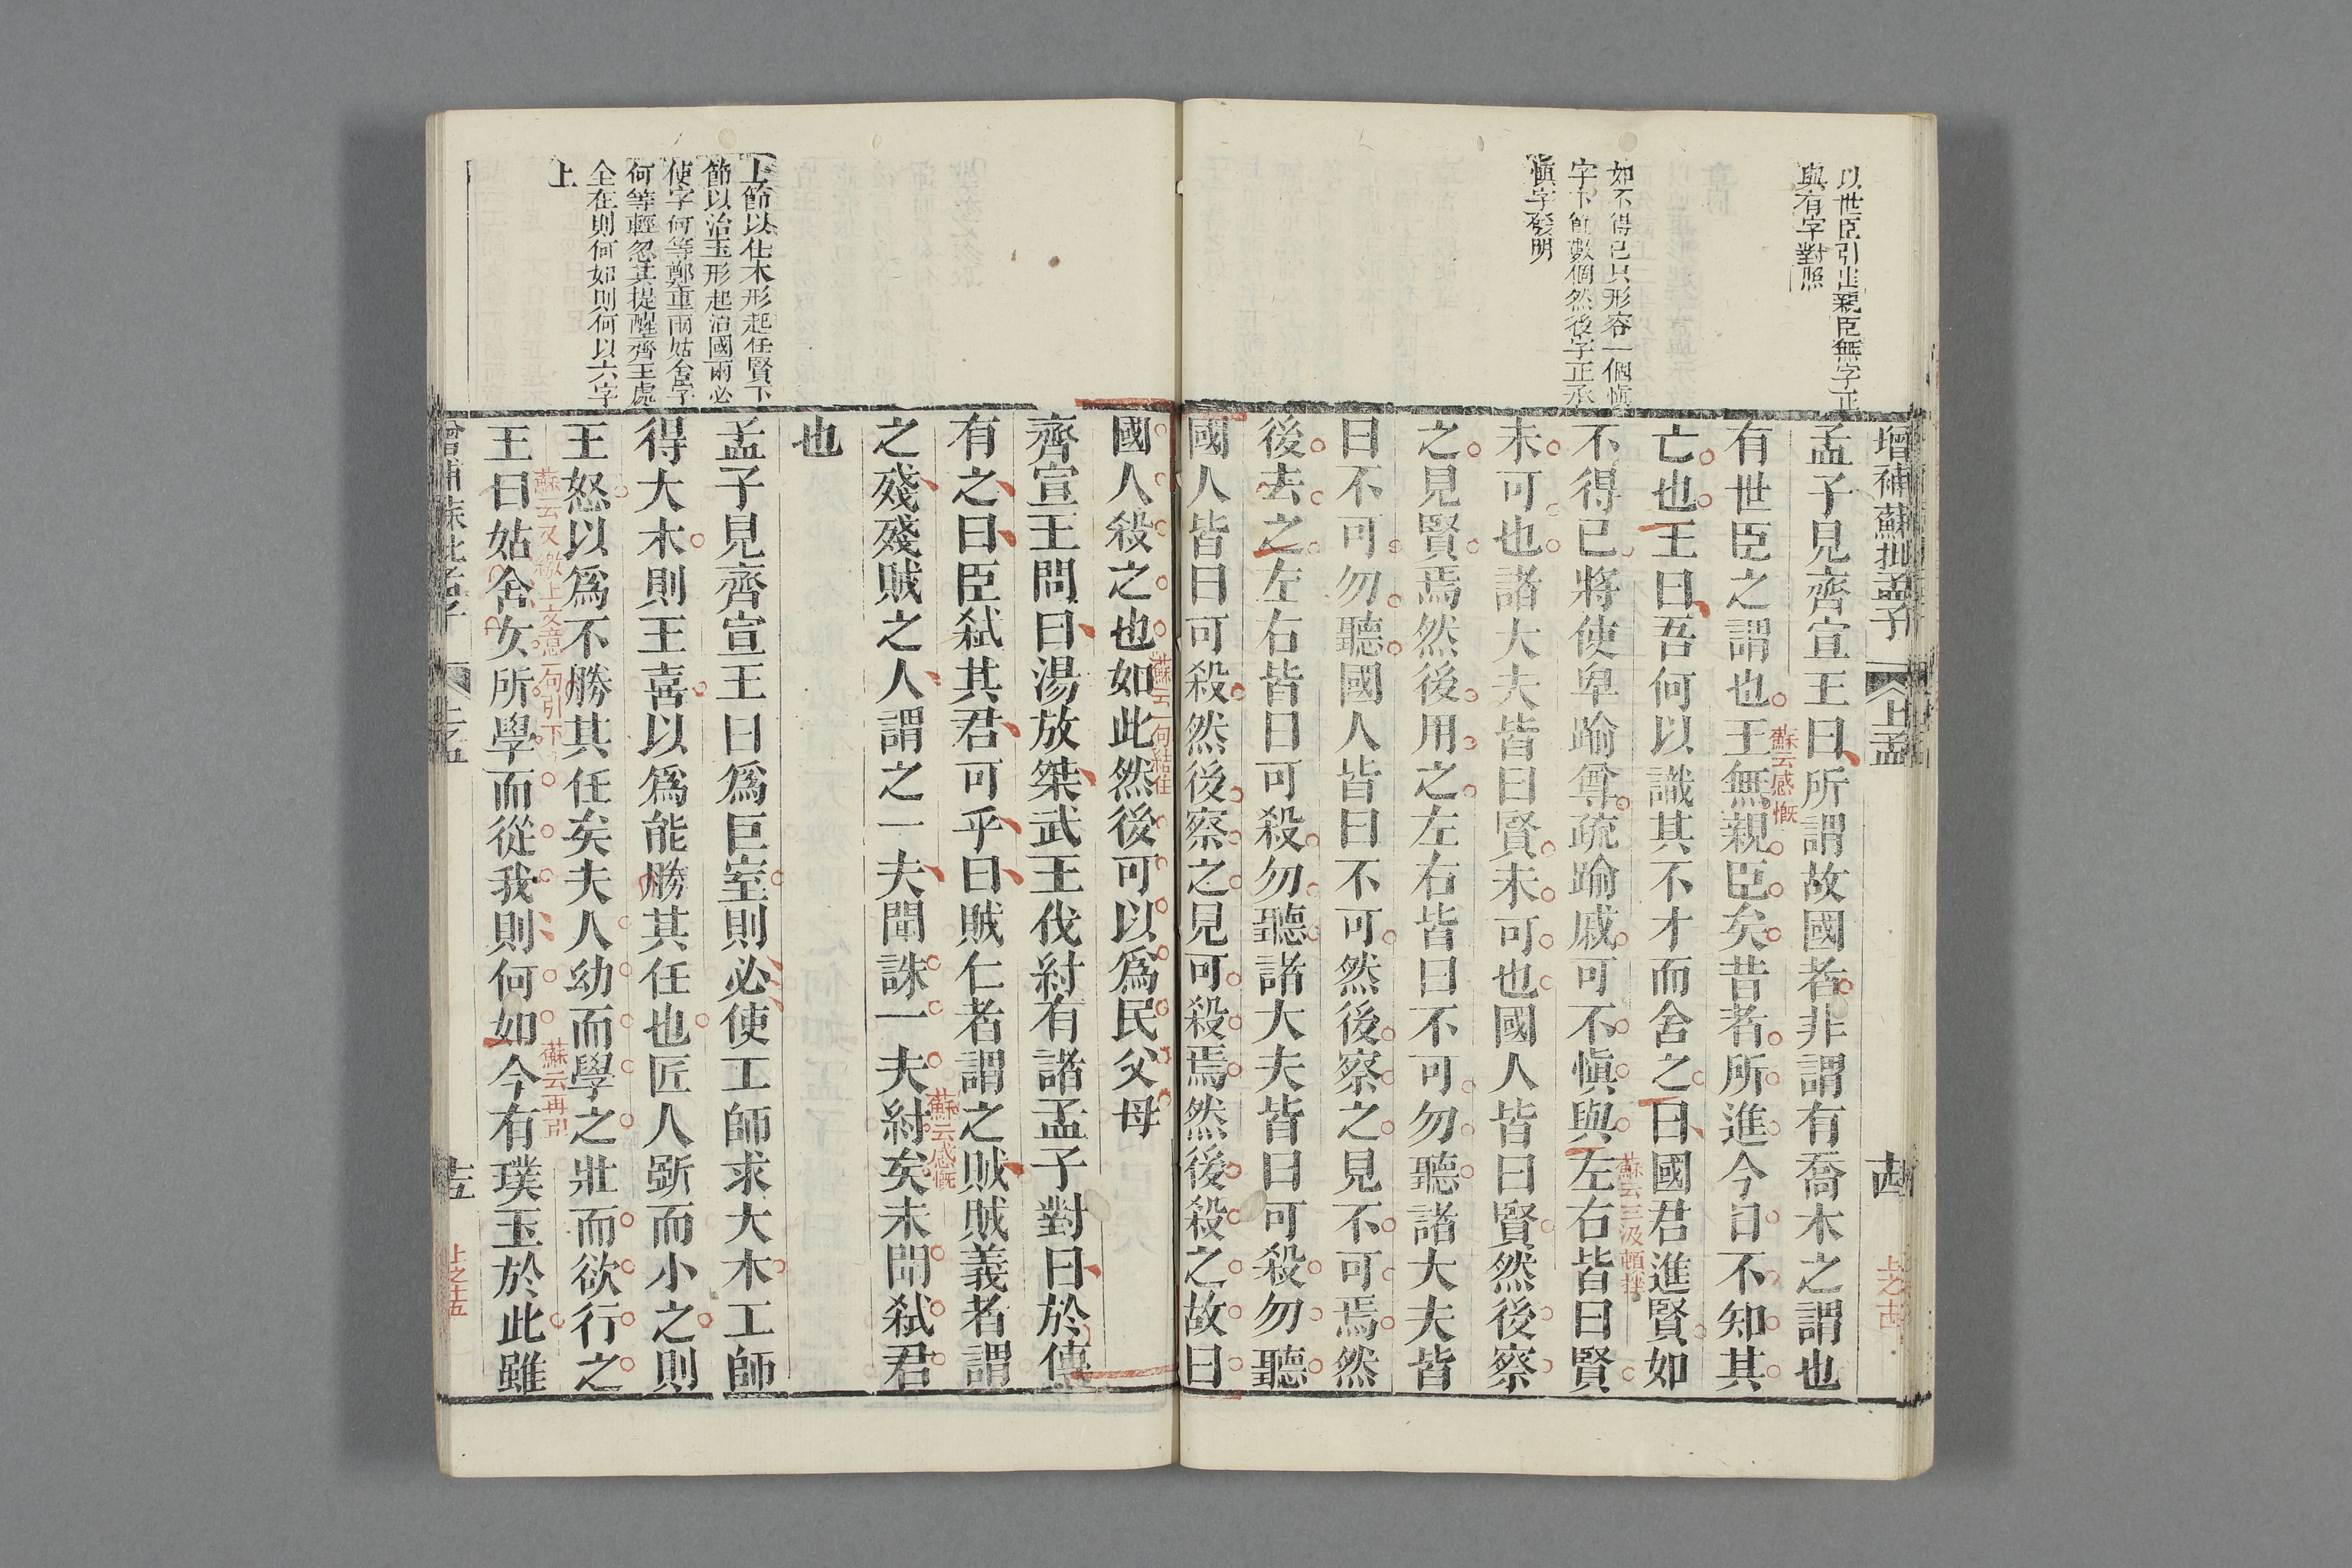 以世臣引出親臣無字正
與有字對照
如不得已只形容一個愼
字下節數個然後字正承
愼字發明
增補蘇批孟子
上孟
上之古
孟子見齊宣王曰所謂故國者非謂有喬木之謂也
蘇云感慨
有世臣之謂也王無親臣矣昔者所進今日不知其
亡也王曰吾何以識其不才而舍之曰國君進賢如
不得已將使卑踰尊疏踰戚可不愼與左右皆曰賢
未可也諸大夫皆曰賢未可也國人皆曰賢然後察
之見賢焉然後用之左右皆曰不可勿聽諸大夫皆
曰不可勿聽國人皆曰不可然後察之見不可焉然
後去之左右皆曰可殺勿聽諸大夫皆曰可殺勿聽
國人皆曰可殺然後察之見可殺焉然後殺之故曰
上節以任木形起任賢下
節以治玉形起治國兩必
使字何等鄭重兩姑舍字
何等輕忽其提醒齊王處
全在則何如則何以六字
上
蘇云一句結住
國人殺之也如此然後可以爲民父母
齊宣王問曰湯放桀武王伐紂有諸孟子對曰於傳
有之曰臣弑其君可乎曰賊仁者謂之賊賊義者謂
蘇云感慨
之殘殘賊之人謂之一夫聞誅一夫紂矣未聞弑君
也
孟子見齊宣王曰爲巨室則必使工師求大木工師
得大木則王喜以爲能勝其任也匠人斲而小之則
王怒以爲不勝其任矣夫人幼而學之壯而欲行之
蘇云又繳上文意一句引下
蘇云再引
王曰姑舍女所學而從我則何如今有璞玉於此雖
增補蘇批孟子
上孟
上之十五